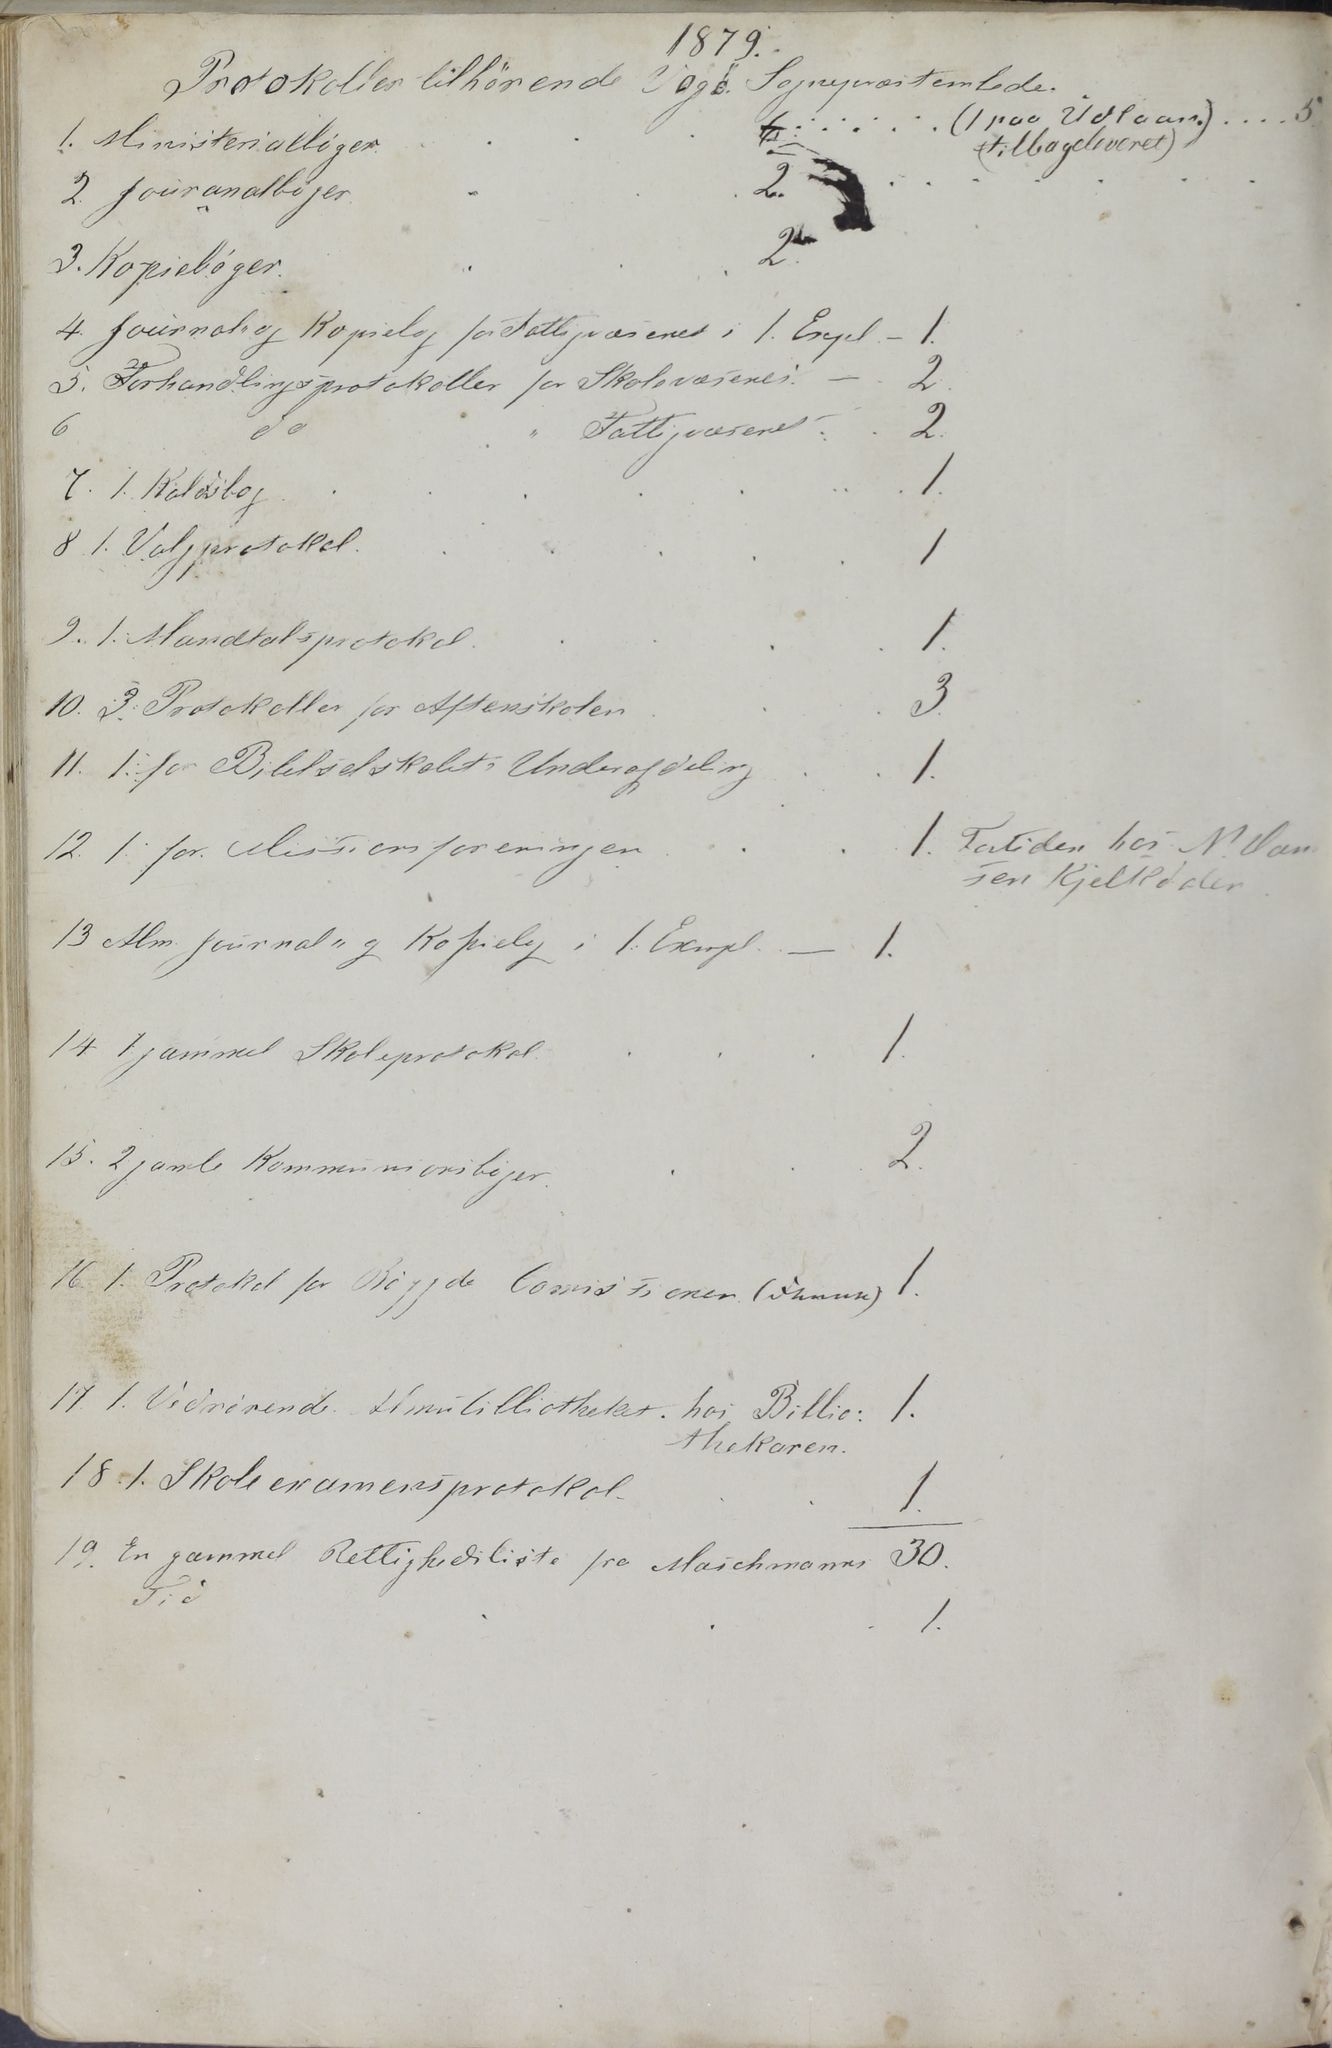 1879.
Protokoller tilhörende Vegö Sognepræstembede.
1. Ministerialbøger . . . (1 paa Udlaan.) .... 5
(tilbageleveret)
2. Jouranalbøger . . 2.
3. Kopiebøger. . . . 2.
4. Journal og Kopiebog for Fattigvæsenet i 1. Expl. – 1.
5. Forhandlingsprotokoller for Skolevæsenet. — . 2.
6 do " Fattigvæsenet . . 2.
7. 1. Kaldsbog . . . . . . . 1.
8 1. Valgprotokol. . . . . . 1
9. 1. Mandtalsprotokol. . . . . 1.
10. 3. Protokoller for Aftenskolen . . . 3.
11. 1. for Bibelselskabets Underafdeling . . 1.
12. 1. for. Missionsforeningen . . . 1. For tiden hos N.
sen
13 Alm. Journal " og Kopiebog i 1. Exmpl. — 1.
14 1 gammel Skoleprotokol. . . . 1.
15. 2 gamle Kommunionsbøger. . . . 2.
16. 1. Protokol for Comissionen 1.
17 1. Vedrørende Almubilliotheket. hos Billio: 1.
thekaren.
18. 1. Skoleexamensprotokol. . . 1.
19. En gammel Rettighedsliste fra Maschmanns 30.
Tid . . . 1.